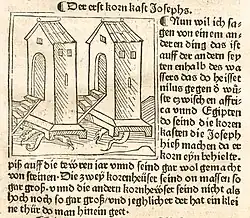 ¶ Der erst korn kast Josephs.
¶ Nun wil ich sa
gen von einem an
deren ding das ist
auff der andern sey
ten enhalb des wa
ssers das do heisset
nilus gegen d̉ wů
ste czwischen affri
ca vnnd Egipten
do seind die koren
kasten die Joseph
hieß machen da er
korn eyn behielte
piß auff die teẅren iar vnnd seind gar wol gemacht
von steinen· Die zwey korenheüser seind on massen so
gar groß· vnnd die andern kornheẅser seind nicht als
hoch noch so gar groß/ vnd yeglicher det hat ein klei
ne thür do man hinein geet·